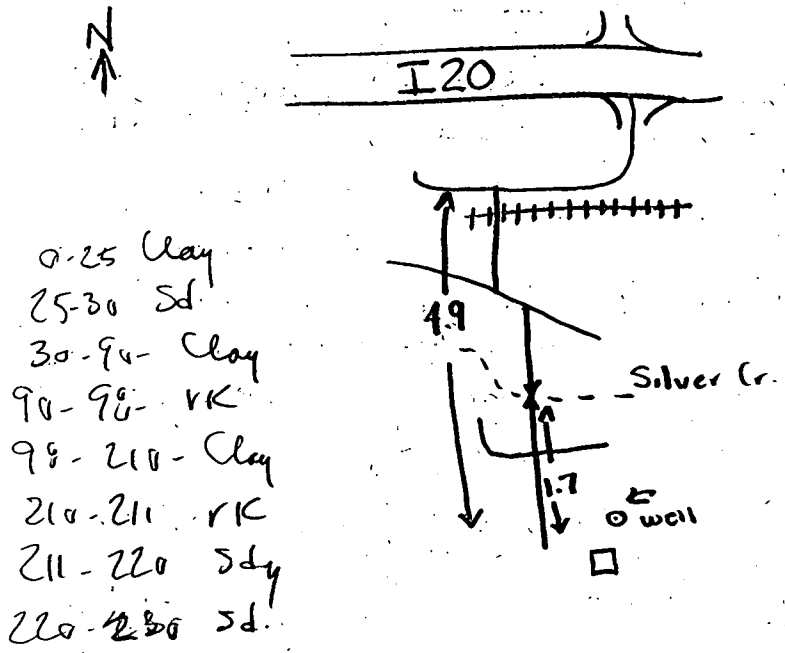 N
I20
0-25 Clay
25-30 Sd.
30-90- Clay
90-98- rK
98-210-Clay
210-211 rK
211-220 Sdy
220-230 Sd.
4.9
Silver Cr.
1.7
well